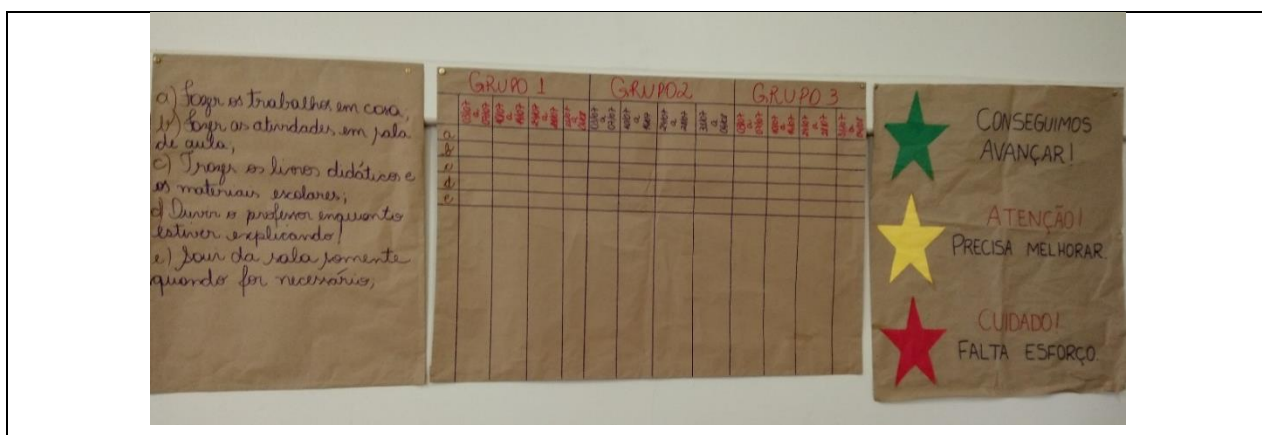 a) Fazer os trabalhos em casa,
b) Fazer as atividades em sala
de aula;
c) Trazer os livros didáticos e
os materiais escolares;
d) Ouvir o professor enquanto
estiver explicando!
e) Sair da sala somente
quando for necessário;
GRUPO 1 GRUPO 2 GRUPO 3
a
b
c
d
e
CONSEGUIMOS
AVANÇAR!
ATENÇÃO!
PRECISA MELHORAR.
CUIDADO!
FALTA ESFORÇO.